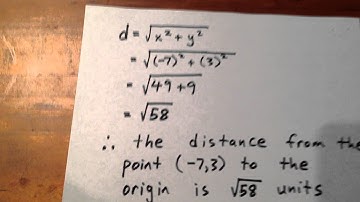 d = √x² + y²
= √(-7)² + (3)²
= √49 + 9
= √58
∴ the distance from the
point (-7,3) to the
origin is √58 units